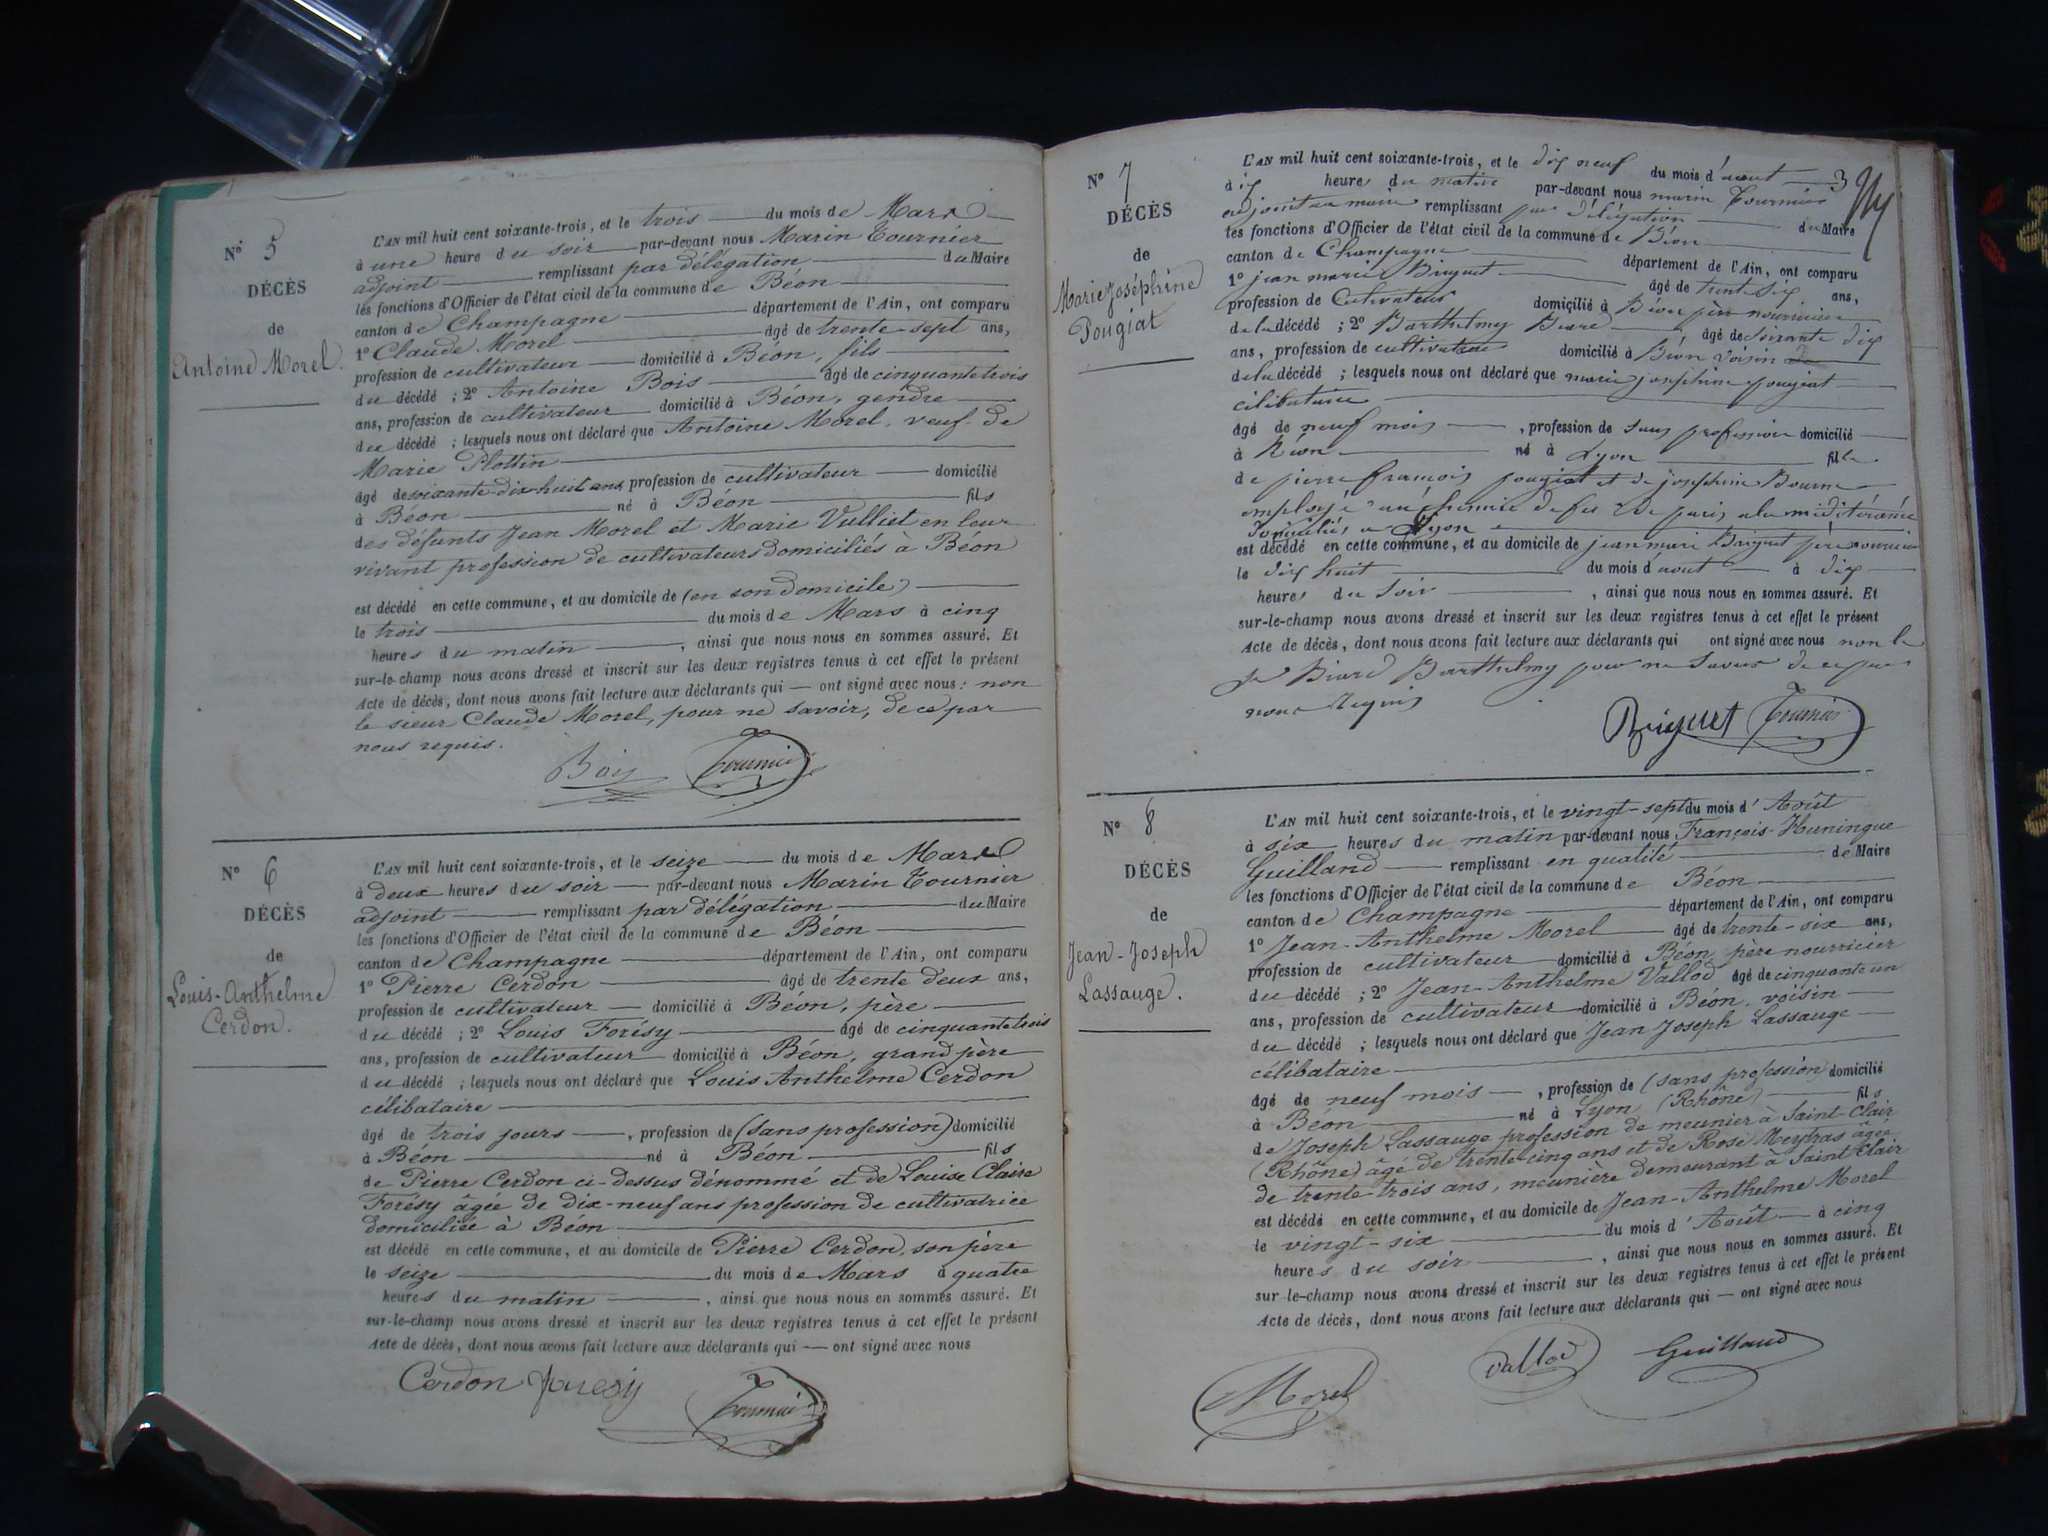 N° 5
DÉCÈS
de
Antoine Morel.
L'AN mil huit cent soixante-trois, et le trois du mois de Mars
à une heure du soir par-devant nous Marin Tournier
adjoint remplissant par délégation du Maire
les fonctions d'Officier de l'état civil de la commune de Béon
canton de Champagne département de l'Ain, ont comparu
1° Claude Morel âgé de trente-sept ans,
profession de cultivateur domicilié à Béon, fils
du décédé ; 2° Antoine Bois âgé de cinquante trois
ans, profession de cultivateur domicilié à Béon, gendre
du décédé ; lesquels nous ont déclaré que Antoine Morel, veuf de
Marie Plottin
âgé de soixante-dix-huit ans, profession de cultivateur domicilié
à Béon né à Béon fils
des défunts Jean Morel et Marie Vulliet en leur
vivant profession de cultivateurs domiciliés à Béon
est décédé en cette commune, et au domicile de (en son domicile)
le trois du mois de Mars à cinq
heures du matin, ainsi que nous nous en sommes assuré. Et
sur-le-champ nous avons dressé et inscrit sur les deux registres tenus à cet effet le présent
Acte de décès, dont nous avons fait lecture aux déclarants qui — ont signé avec nous : non
le sieur Claude Morel, pour ne savoir, de ce par
nous requis.
Bois Tournier
N° 6
DÉCÈS
de
Louis-Anthelme
Cerdon.
L'AN mil huit cent soixante-trois, et le seize du mois de Mars
à deux heures du soir par-devant nous Marin Tournier
adjoint remplissant par délégation du Maire
les fonctions d'Officier de l'état civil de la commune de Béon
canton de Champagne département de l'Ain, ont comparu
1° Pierre Cerdon âgé de trente deux ans,
profession de cultivateur domicilié à Béon, père
du décédé ; 2° Louis Forésy âgé de cinquante trois
ans, profession de cultivateur domicilié à Béon, grand père
du décédé ; lesquels nous ont déclaré que Louis Anthelme Cerdon
célibataire
âgé de trois jours, profession de (sans profession) domicilié
à Béon né à Béon fils
de Pierre Cerdon ci-dessus dénommé et de Louise Claire
Forésy âgée de dix-neuf ans profession de cultivatrice
domiciliée à Béon
est décédé en cette commune, et au domicile de Pierre Cerdon, son père
le seize du mois de Mars à quatre
heures du matin, ainsi que nous nous en sommes assuré. Et
sur-le-champ nous avons dressé et inscrit sur les deux registres tenus à cet effet le présent
Acte de décès, dont nous avons fait lecture aux déclarants qui — ont signé avec nous
Cerdon Foresy Tournier
N° 7
DÉCÈS
de
Marie Joséphine
Pougiat
3
L'AN mil huit cent soixante-trois, et le dix neuf du mois d'aout
à dix heures du matin par-devant nous marin Tournier
adjoint au maire remplissant par délégation du Maire
les fonctions d'Officier de l'état civil de la commune de Béon
canton de Champagne département de l'Ain, ont comparu
1° jean marie Briquet âgé de trente six ans,
profession de Cultivateur domicilié à Béon père nourricier
de la décédé ; 2° Barthelmy Biard âgé de soixante dix
ans, profession de cultivateur domicilié à Béon voisin de
de la décédé ; lesquels nous ont déclaré que marie josephine pougiat
célibataire
âgé de neuf mois, profession de sans profession domicilié
à Béon né à Lyon fille
de pierre françois pougiat et de josephine Bourne
employé au chemin de fer de paris a la méditéranée
domiciliés a Lyon
est décédé en cette commune, et au domicile de jean marie Briquet père nourricier
le dix huit du mois d'aout à dix
heures du Soir, ainsi que nous nous en sommes assuré. Et
sur-le-champ nous avons dressé et inscrit sur les deux registres tenus à cet effet le présent
Acte de décès, dont nous avons fait lecture aux déclarants qui ont signé avec nous non le
Sr Biard Barthelmy pour ne Savoir de ce par
nous Requis
Briquet Tournier
N° 8
DÉCÈS
de
Jean-Joseph
Lassauge.
L'AN mil huit cent soixante-trois, et le vingt-sept du mois d'Août
à six heures du matin par-devant nous François-Huningue
Guilland remplissant en qualité de Maire
les fonctions d'Officier de l'état civil de la commune de Béon
canton de Champagne département de l'Ain, ont comparu
1° Jean-Anthelme Morel âgé de trente-six ans,
profession de cultivateur domicilié à Béon, père nourricier
du décédé ; 2° Jean-Anthelme Vallod âgé de cinquante un
ans, profession de cultivateur domicilié à Béon, voisin
du décédé ; lesquels nous ont déclaré que Jean Joseph Lassauge
célibataire
âgé de neuf mois, profession de (sans profession) domicilié
à Béon né à Lyon (Rhône) fils
de Joseph Lassauge profession de meunier à Saint-Clair
(Rhône) âgé de trente-cinq ans et de Rose Meytras âgée
de trente-trois ans, meunière demeurant à Saint Clair
est décédé en cette commune, et au domicile de Jean-Anthelme Morel
le vingt-six du mois d'Août à cinq
heures du soir, ainsi que nous nous en sommes assuré. Et
sur-le-champ nous avons dressé et inscrit sur les deux registres tenus à cet effet le présent
Acte de décès, dont nous avons fait lecture aux déclarants qui — ont signé avec nous
Morel Vallod Guilland